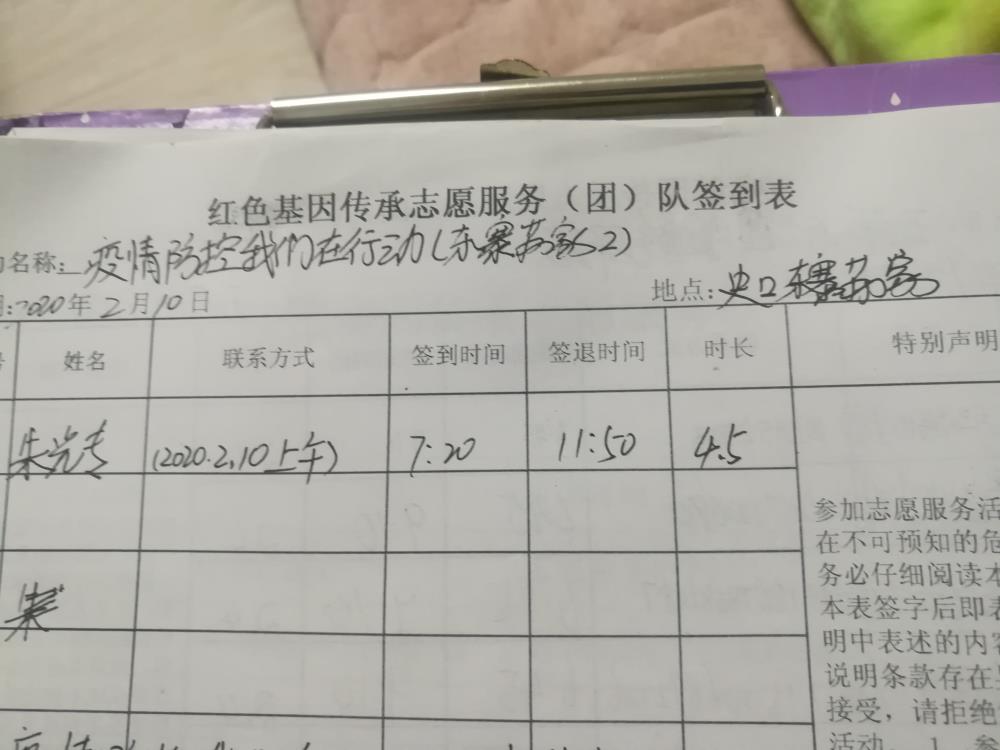 红色基因传承志愿服务（团）队签到表
名称：疫情防控我们在行动(东寨苏家2)
2020年2月10日 地点：史口东寨苏家
姓名 联系方式 签到时间 签退时间 时长 特别声明
朱光专 (2020.2.10上午) 7:20 11:50 4.5
参加志愿服务活
在不可预知的危
务必仔细阅读本
本表签字后即表
明中表述的内容
说明条款存在
接受，请拒绝
活动。1、参